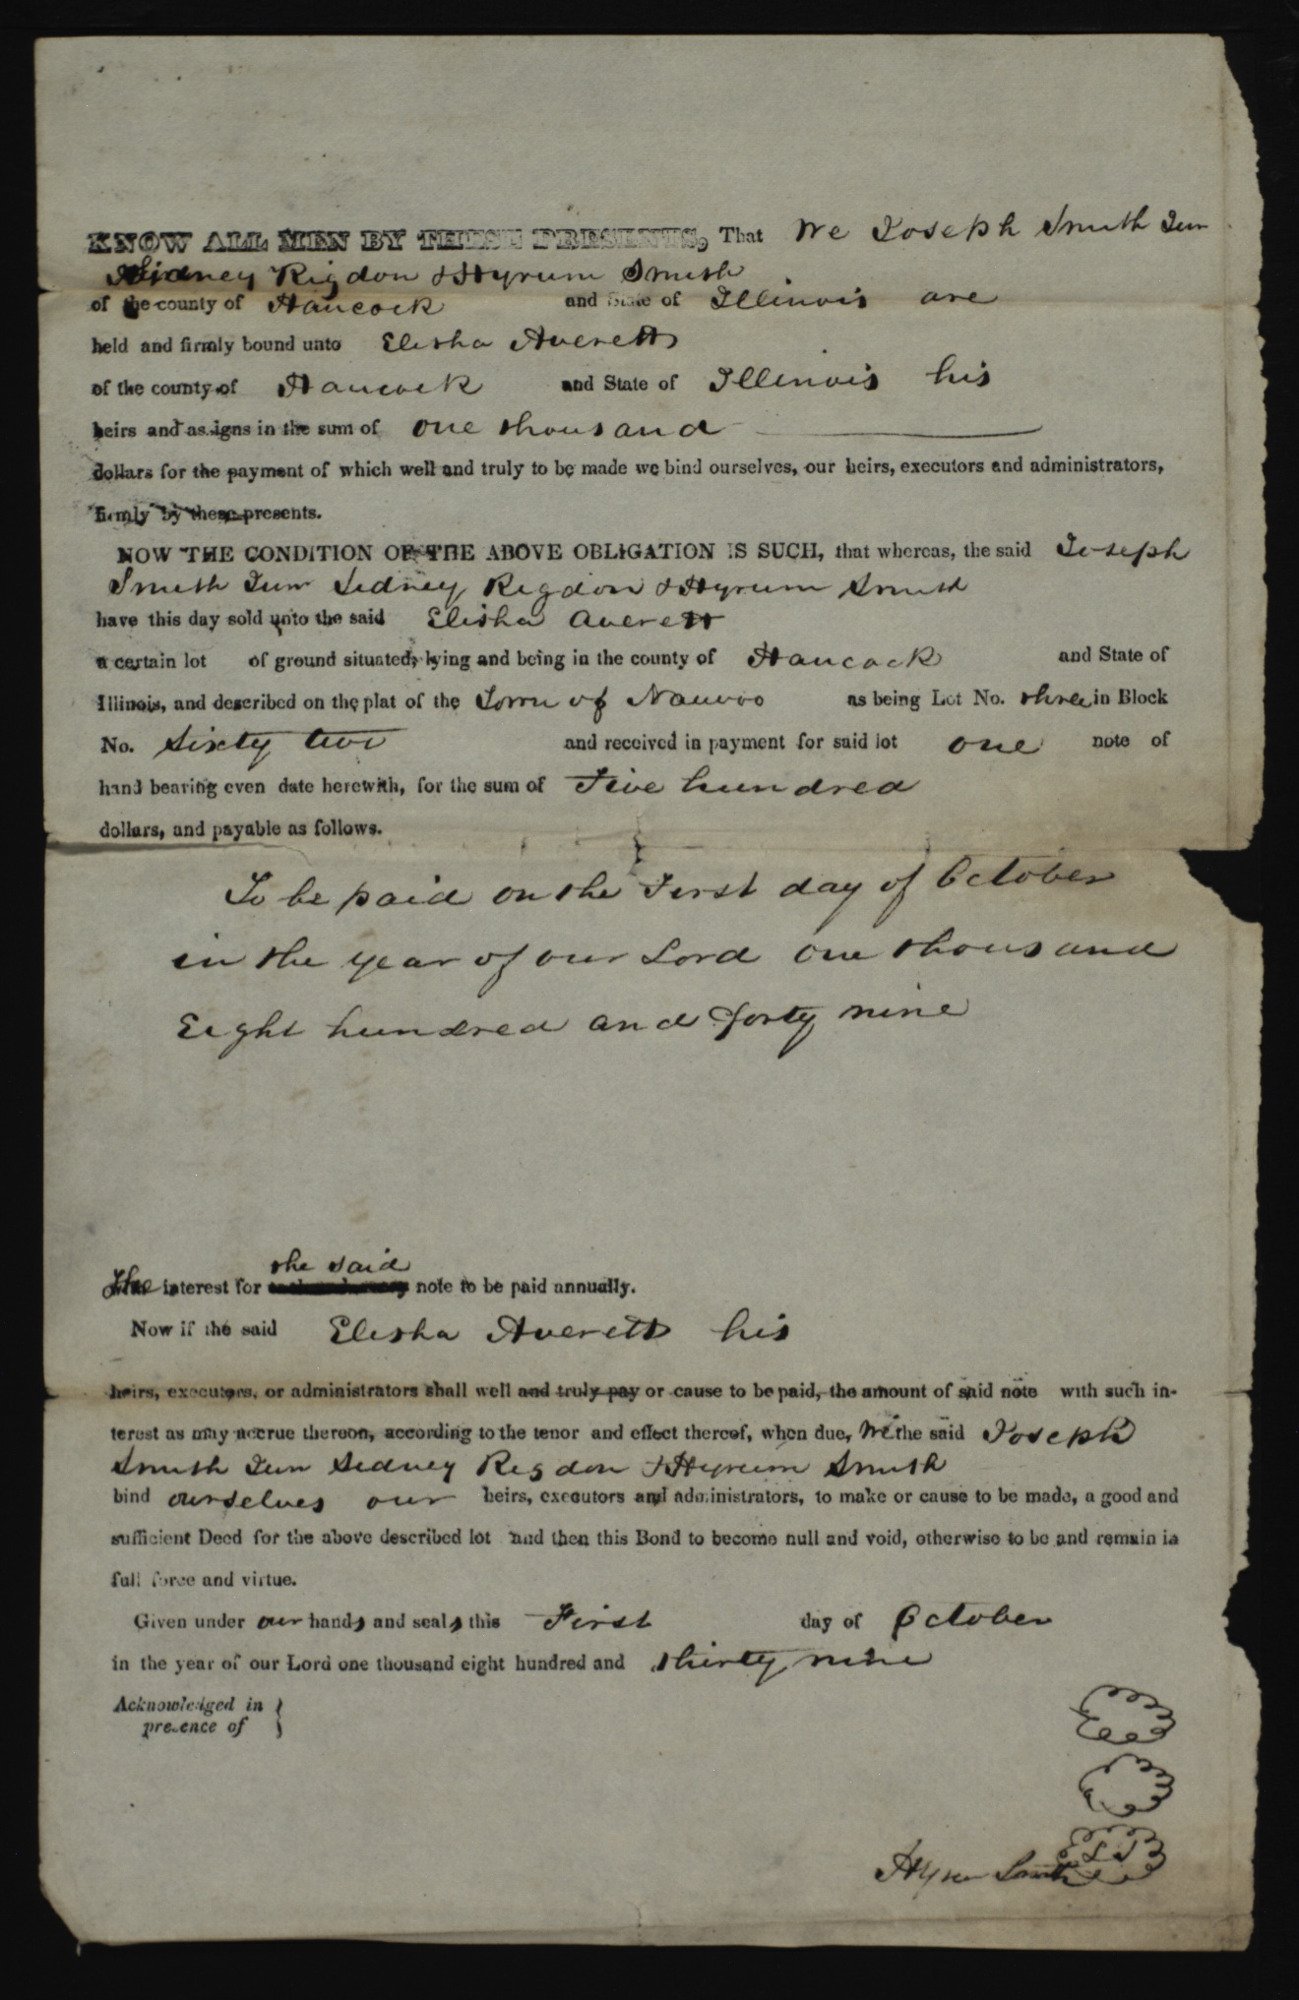 KNOW ALL MEN BY THESE PRESENTS, That We Joseph Smith Jun
Sidney Rigdon & Hyrum Smith
of the county of Hancock and State of Illinois are
held and firmly bound unto Elisha Averett
of the county of Hancock and State of Illinois his
heirs and assigns in the sum of one thousand
dollars for the payment of which well and truly to be made we bind ourselves, our heirs, executors and administrators,
firmly by these presents.
NOW THE CONDITION OF THE ABOVE OBLIGATION IS SUCH, that whereas, the said Joseph
Smith Jun Sidney Rigdon & Hyrum Smith
have this day sold unto the said Elisha Averett
a certain lot of ground situated, lying and being in the county of Hancock and State of
Illinois, and described on the plat of the Town of Nauvoo as being Lot No. three in Block
No. Sixty two and received in payment for said lot one note of
hand bearing even date herewith, for the sum of Five hundred
dollars, and payable as follows.
To be paid on the First day of October
in the year of our Lord one thousand
Eight hundred and forty nine
the said
The interest for note to be paid annually.
Now if the said Elisha Averett his
heirs, executors, or administrators shall well and truly pay or cause to be paid, the amount of said note with such in-
terest as may accrue thereon, according to the tenor and effect thereof, when due, We the said Joseph
Smith Jun Sidney Rigdon & Hyrum Smith
bind ourselves our heirs, executors and administrators, to make or cause to be made, a good and
sufficient Deed for the above described lot and then this Bond to become null and void, otherwise to be and remain in
full force and virtue.
Given under our hands and seals this First day of October
in the year of our Lord one thousand eight hundred and thirty nine
Acknowledged in }
presence of }
Hyrum Smith L S